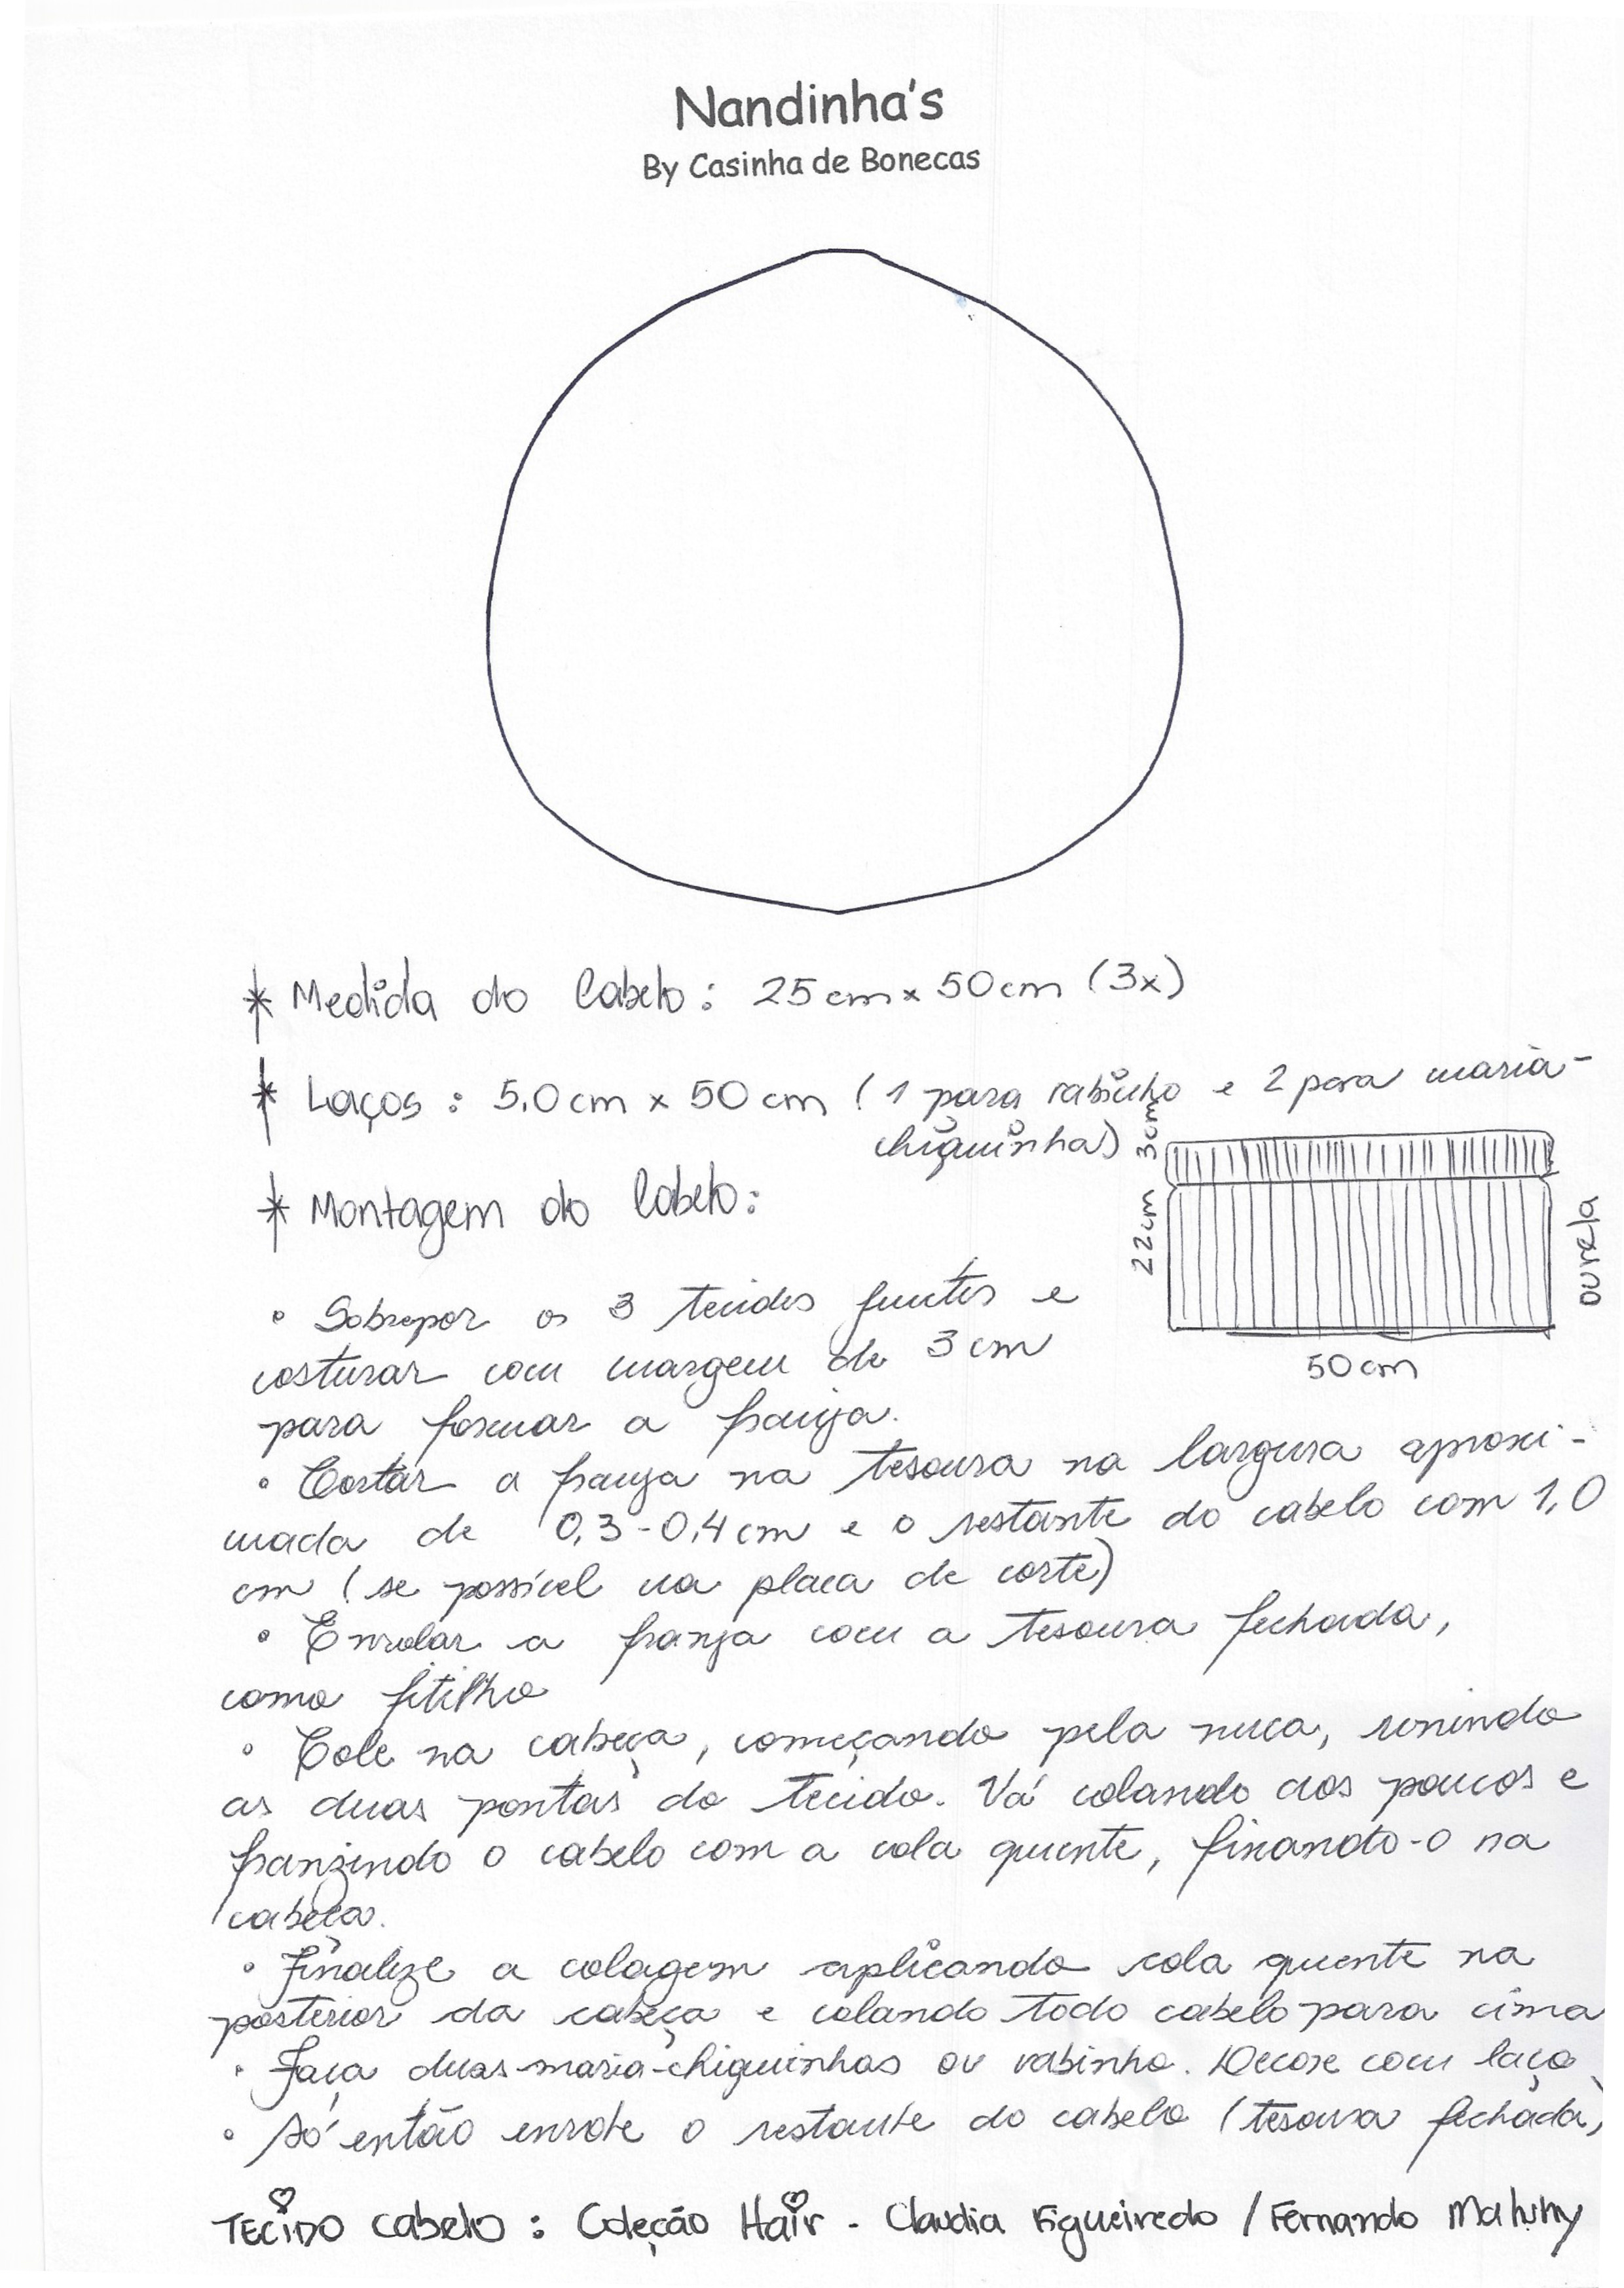 Nandinha's
By Casinha de Bonecas
* Medida do Cabelo: 25cm x 50cm (3x)
* Laços: 5,0cm x 50cm (1 para rabicho e 2 para maria-
chiquinha)
3cm
22cm
ourela
50cm
* Montagem do Cabelo:
• Sobrepor os 3 tecidos juntos e
costurar com margem de 3cm
para formar a franja.
• Cortar a franja na tesoura na largura aproxi-
mada de 0,3-0,4cm e o restante do cabelo com 1,0
cm (se possível na placa de corte)
• Enrolar a franja com a tesoura fechada,
como fitilho
• Cole na cabeça, começando pela nuca, unindo
as duas pontas do tecido. Vá colando aos poucos e
franzindo o cabelo com a cola quente, fixando-o na
cabeça.
• Finalize a colagem aplicando cola quente na
posterior da cabeça e colando todo cabelo para cima
• Faça duas maria-chiquinhas ou rabinho. Decore com laço
• Só então enrole o restante do cabelo (tesoura fechada)
TECIDO Cabelo: Coleção Hair - Claudia Figueiredo / Fernando Maluhy